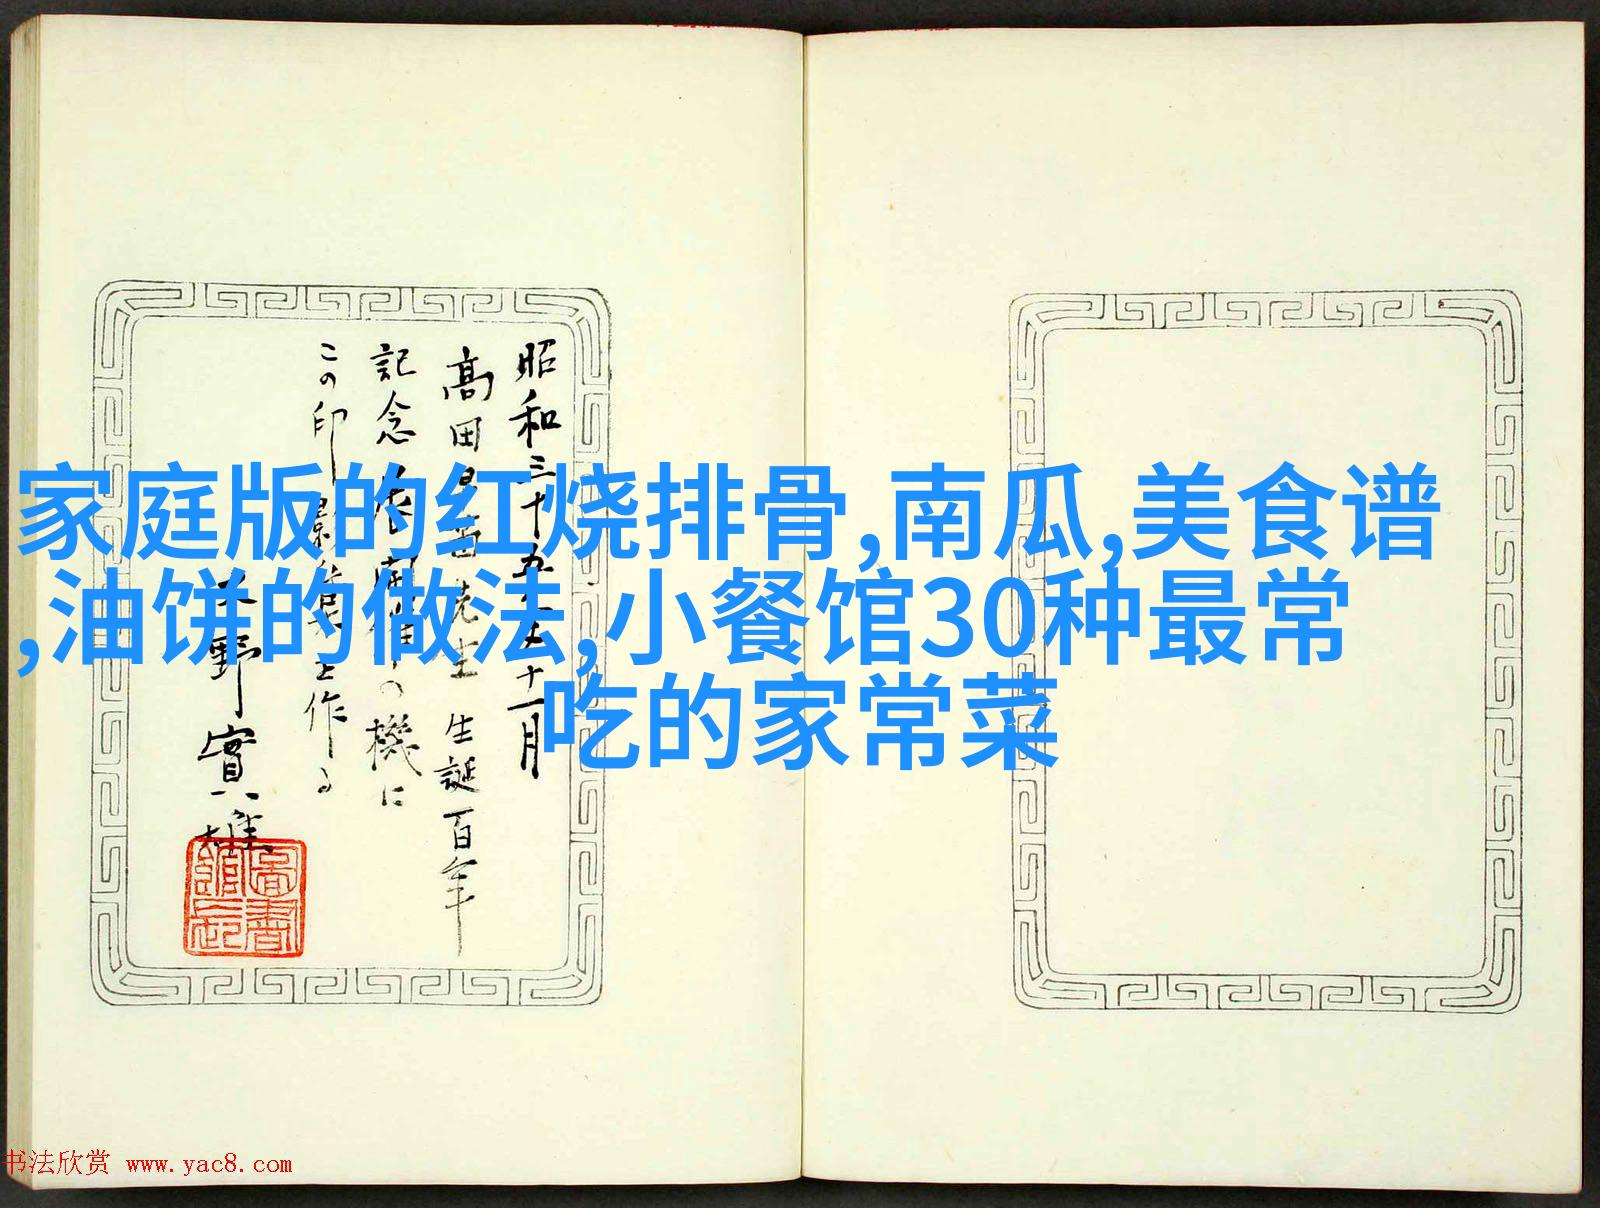 家庭版的红烧排骨,南瓜,美食谱
,油饼的做法,小餐馆30种最常
吃的家常菜
昭和三十五年十一月
高田早苗先生 生誕百年
記念展開催の機に
この印
作る
野實雄
圖書館長
书法欣赏 www.yac8.com